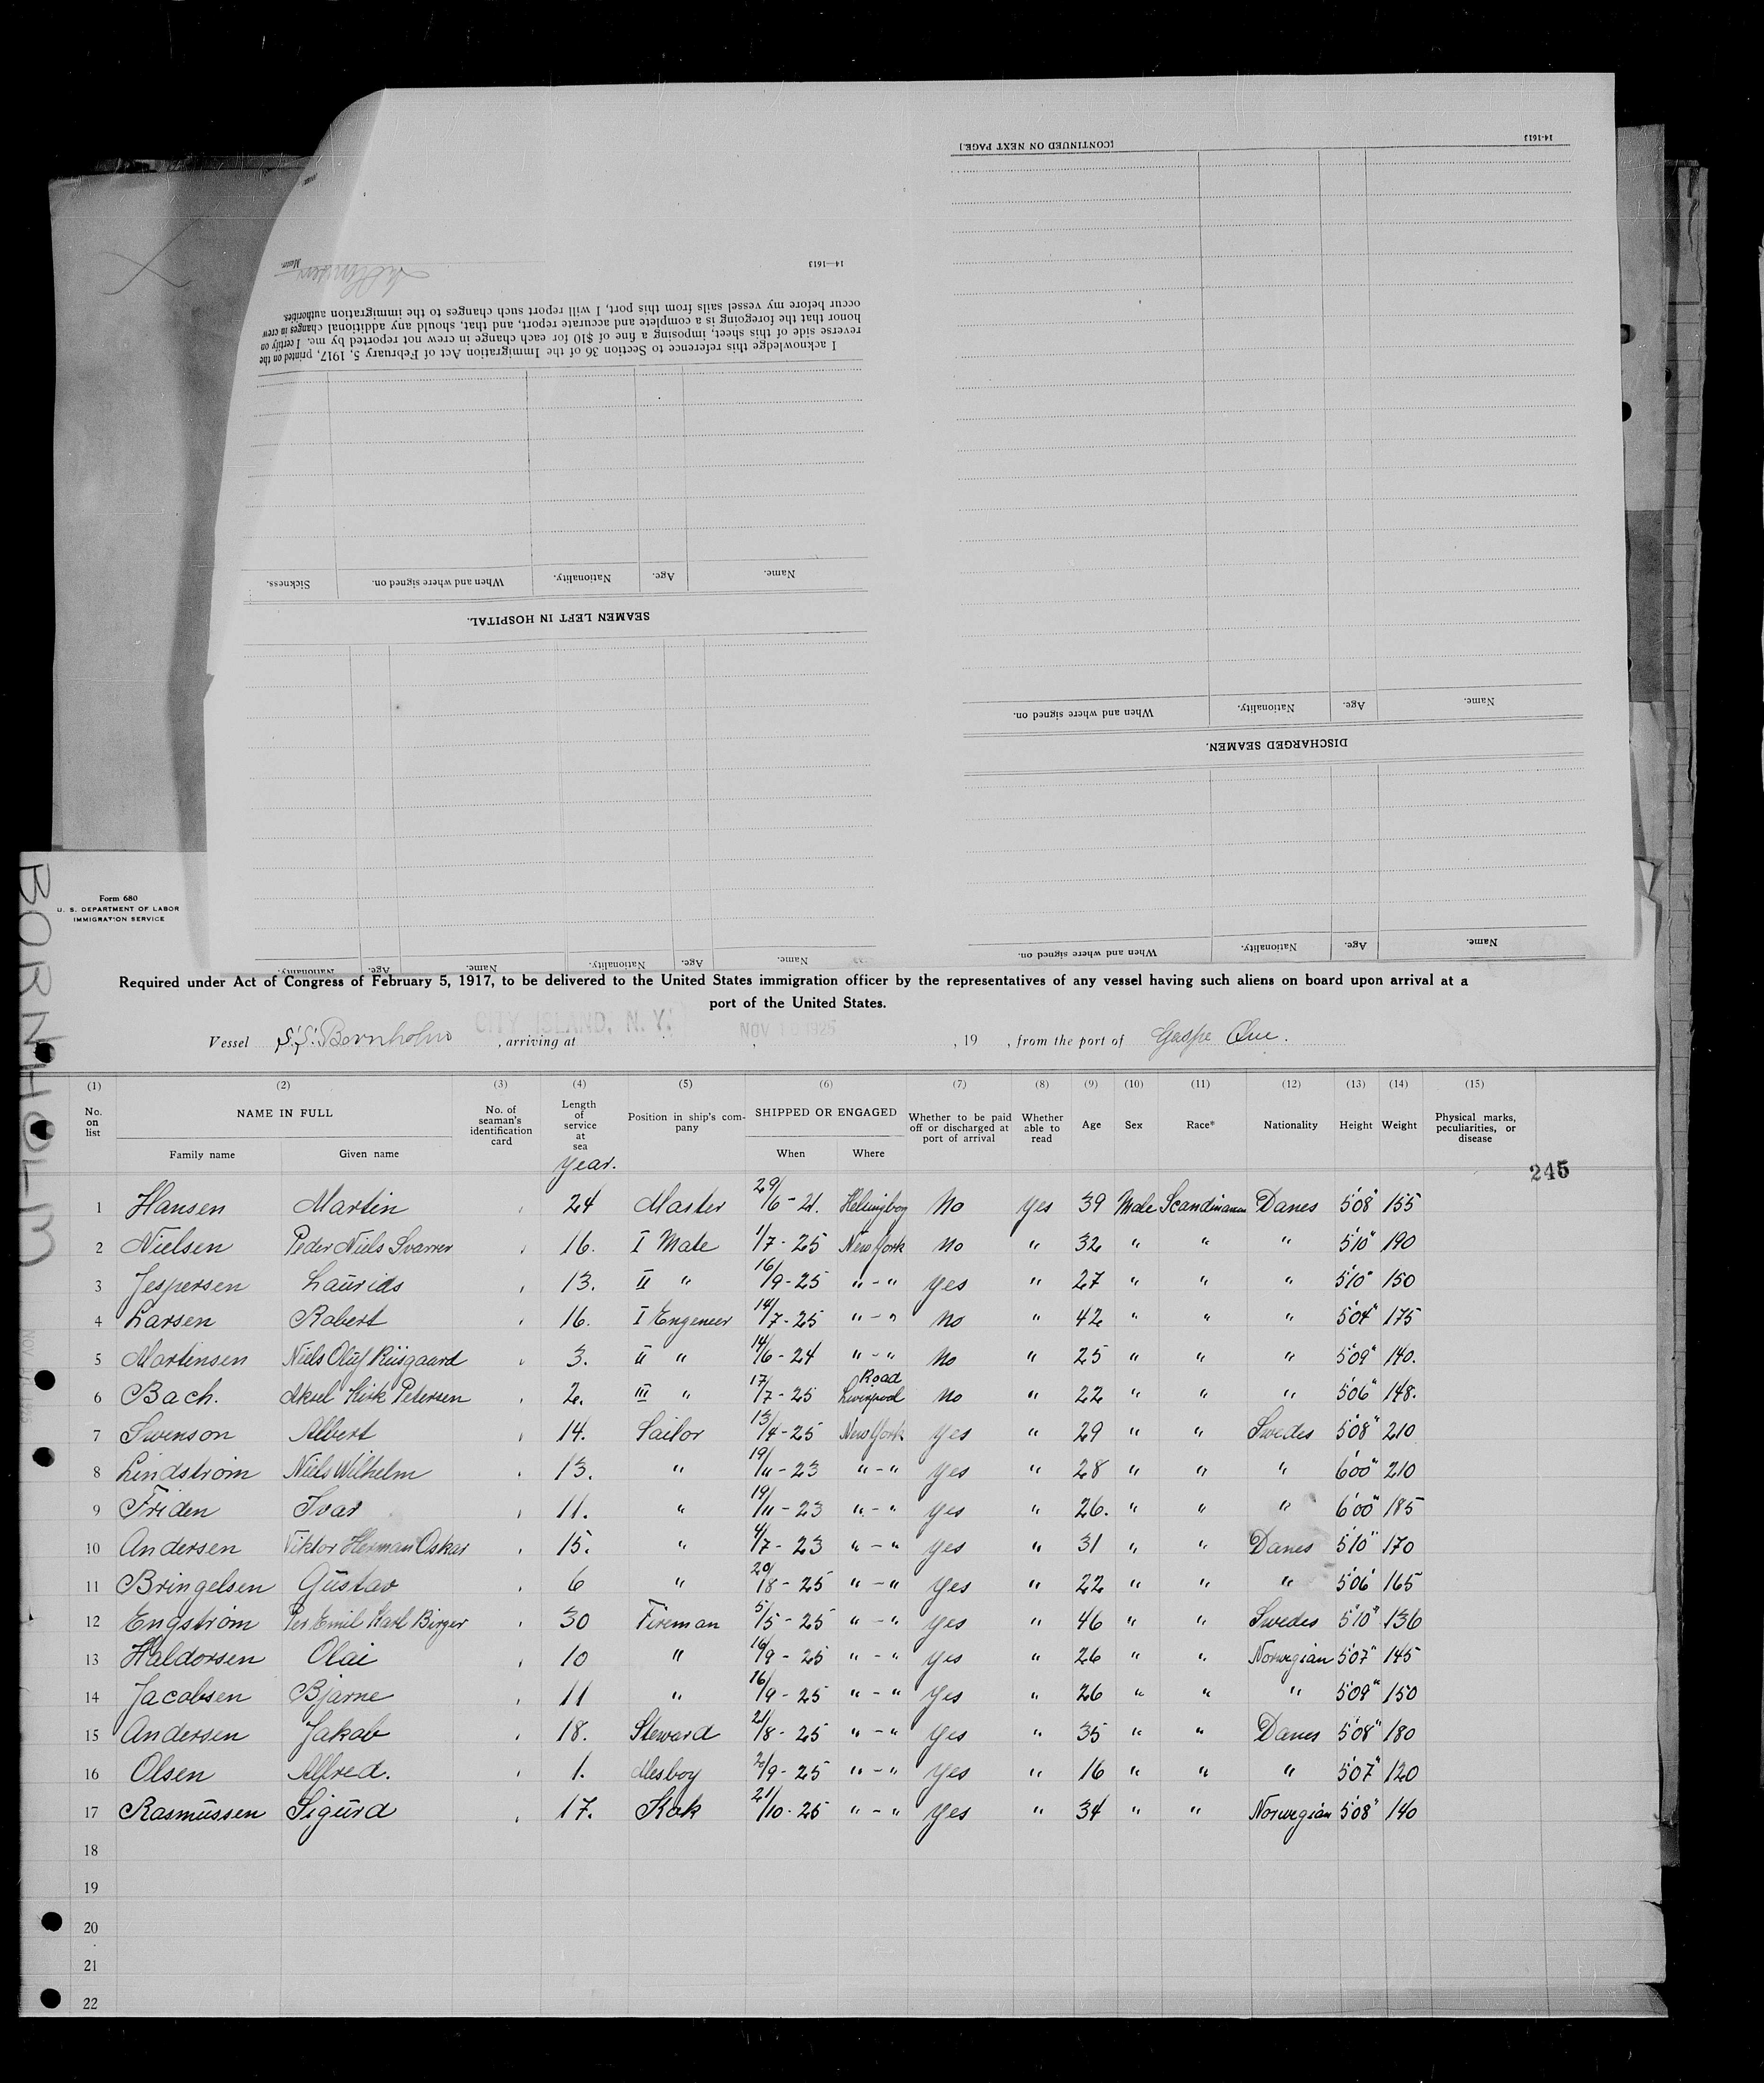 [CONTINUED ON NEXT PAGE.]
14-1613
Name.
Age.
Nationality.
When and where signed on.
DISCHARGED SEAMEN.
Name.
Age.
Nationality.
When and where signed on.
14—1613
Master.
I acknowledge this reference to Section 36 of the Immigration Act of February 5, 1917, printed on the
reverse side of this sheet, imposing a fine of $10 for each change in crew not reported by me. I certify on
honor that the foregoing is a complete and accurate report, and that, should any additional changes in crew
occur before my vessel sails from this port, I will report such changes to the immigration authorities.
Name.
Age.
Nationality.
When and where signed on.
Sickness.
SEAMEN LEFT IN HOSPITAL.
Name.
Age.
Nationality.
Name.
Age.
Nationality.
BORNHOLM
Form 680
U. S. DEPARTMENT OF LABOR
IMMIGRATION SERVICE
Required under Act of Congress of February 5, 1917, to be delivered to the United States immigration officer by the representatives of any vessel having such aliens on board upon arrival at a
port of the United States.
CITY ISLAND, N. Y.
NOV 10 1925
Vessel S.S. Bornholm , arriving at , 19 , from the port of Gaspe Que.
(1) (2) (3) (4) (5) (6) (7) (8) (9) (10) (11) (12) (13) (14) (15)
No. on list
NAME IN FULL
Family name Given name
No. of seaman's identification card
Length of service at sea
year.
Position in ship's company
SHIPPED OR ENGAGED
When Where
Whether to be paid off or discharged at port of arrival
Whether able to read
Age
Sex
Race*
Nationality
Height
Weight
Physical marks, peculiarities, or disease
245
1 Hansen Martin 24 Master 29/6 - 21. Helsingborg No Yes 39 Male Scandinavian Danes 5'08" 155
2 Nielsen Peder Niels Svarrer 16. I Mate 1/7 - 25 New York No " 32 " " " 5'10" 190
3 Jespersen Laurids 13. II " 16/9 - 25 " - " Yes " 27 " " " 5'10" 150
4 Larsen Robert 16. I Engeneer 14/7 - 25 " - " No " 42 " " " 5'04" 175
5 Mortensen Niels Oluf Riisgaard 3. II " 14/6 - 24 " - " No " 25 " " " 5'09" 140.
6 Bach. Aksel Kirk Petersen 2. III " 17/7 - 25 Liverpool Road No " 22 " " " 5'06" 148.
7 Swenson Albert 14. Sailor 13/4 - 25 New York Yes " 29 " " Swedes 5'08" 210
8 Lindstrom Niels Wilhelm 13. " 19/11 - 23 " - " Yes " 28 " " " 6'00" 210
9 Friden Ivar 11. " 19/11 - 23 " - " Yes " 26. " " " 6'00" 185
10 Andersen Viktor Herman Oskar 15. " 4/7 - 23 " - " Yes " 31 " " Danes 5'10" 170
11 Bringelsen Gustav 6 " 20/8 - 25 " - " Yes " 22 " " " 5'06" 165
12 Engstrom Per Emil Karl Birger 30 Fireman 5/5 - 25 " - " Yes " 46 " " Swedes 5'10" 136
13 Haldorsen Olai 10 " 16/9 - 25 " - " Yes " 26 " " Norwegian 5'07" 145
14 Jacobsen Bjarne 11 " 16/9 - 25 " - " Yes " 26 " " " 5'09" 150
15 Andersen Jakob 18. Steward 21/8 - 25 " - " Yes " 35 " " Danes 5'08" 180
16 Olsen Alfred. 1. Mesboy 2/9 - 25 " - " Yes " 16 " " " 5'07" 120
17 Rasmussen Sigurd 17. Kok 21/10 - 25 " - " Yes " 34 " " Norwegian 5'08" 140
18
19
20
21
22